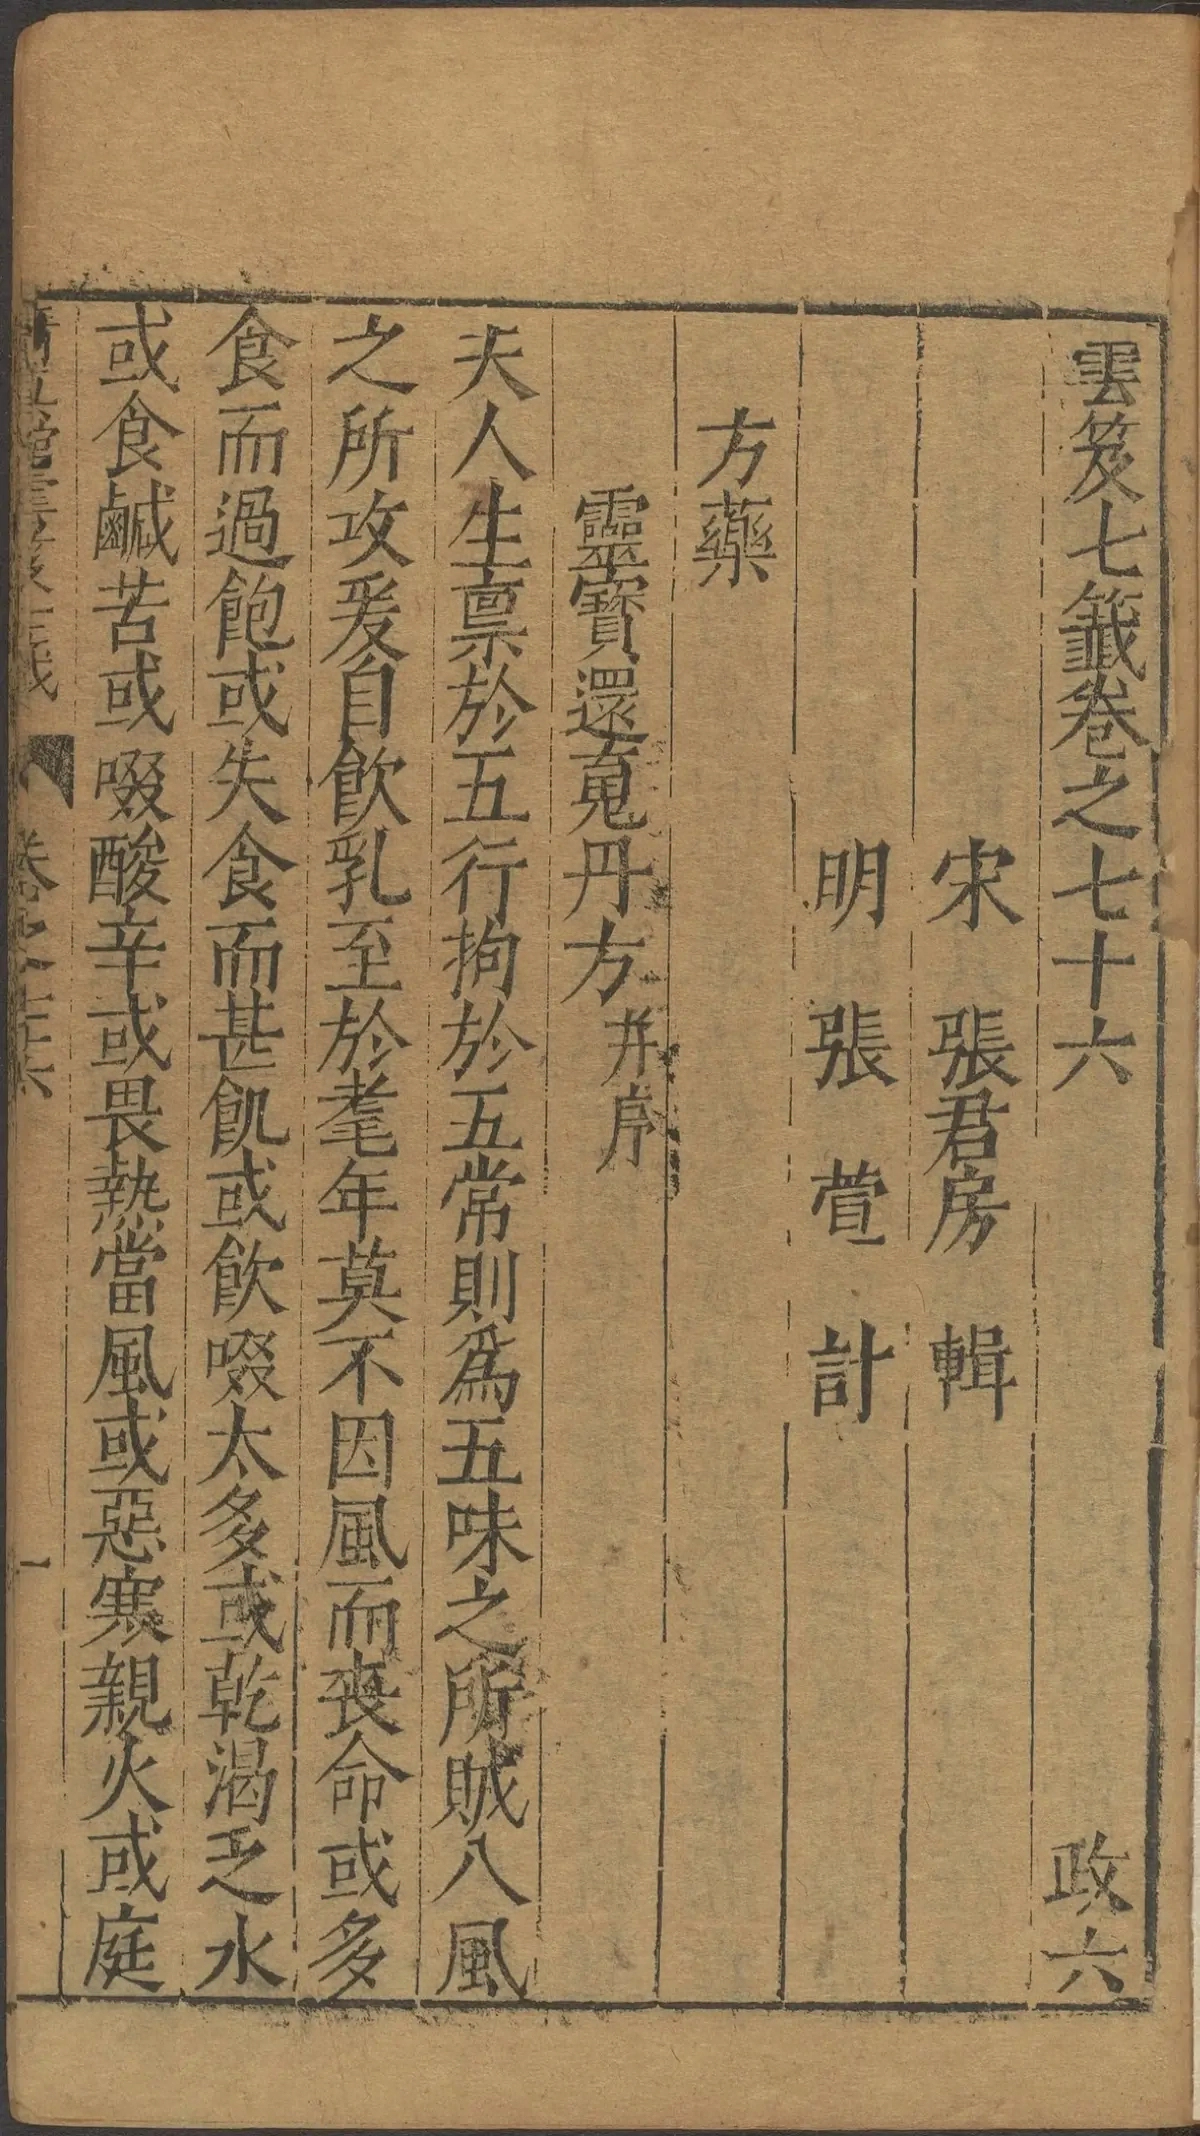 雲笈七籤卷之七十六 政六
宋 張君房 輯
明 張 萱 計
方藥
靈寶還䰟丹方 并序
夫人生禀於五行拘於五常則爲五味之所賊八風
之所攻爰自飲乳至於耄年莫不因風而喪命或多
食而過飽或失食而甚飢或飲啜太多或乾渴乏水
或食鹹苦或啜酸辛或畏熱當風或惡寒親火或庭
清真館雲笈七籤 卷之七十六 一